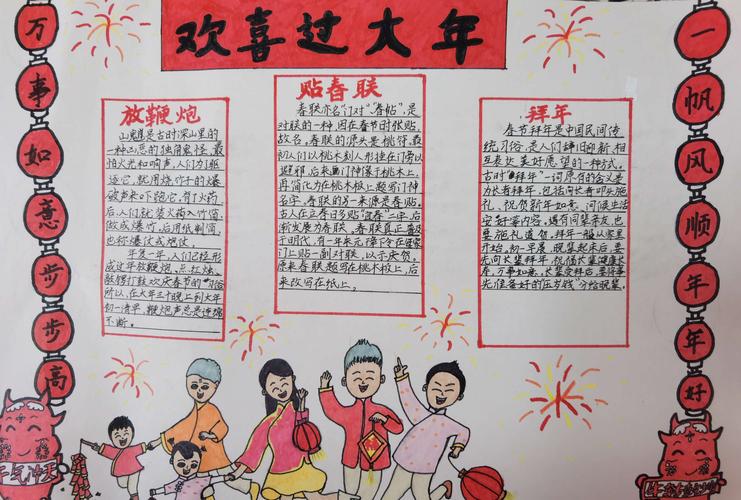 欢喜过大年
万事如意步步高
一帆风顺年年好
放鞭炮
山魈是古时深山里的
一种凶恶的独角鬼怪,最
怕火光和响声,人们为驱
逐它,就用烧竹子的爆
破声来吓跑它,有了火药
后,人们就装火药入竹筒,
做成爆竹,后用纸制筒,
也称爆仗或炮仗。
年复一年,人们已经形
成过年放鞭炮、点红烛、
敲锣打鼓欢庆春节的习俗
所以,在大年三十晚上到大年
初一清早,鞭炮声总是连绵
不断。
贴春联
春联亦名"门对"、"春帖",是
对联的一种,因在春节时张贴,
故名,春联的源头是桃符,最
初人们以桃木刻人形挂在门旁以
避邪,后来画门神像于桃木上,
再简化为在桃木板上题写门神
名字,春联的另一来源是春贴,
古人在立春日多贴"宜春"二字,后
渐发展为春联,春联真正普及
于明代,有一年朱元璋下令在每家
门上贴一副对联,以示庆贺。
原来春联题写在桃木板上,后
来改写在纸上。
拜年
春节拜年是中国民间传
统习俗,是人们辞旧迎新、相
互表达美好愿望的一种方式。
古时"拜年"一词原有的含义是
为长者拜年,包括向长者叩头施
礼、祝贺新年如意、问候生活
安好等内容。遇有同辈亲友,也
要施礼道贺。拜年一般从家里
开始,初一早晨,晚辈起床后,要
先向长辈拜年,祝福长辈健康长
寿,万事如意,长辈受拜后,要将事
先准备好的"压岁钱"分给晚辈。
牛气冲天